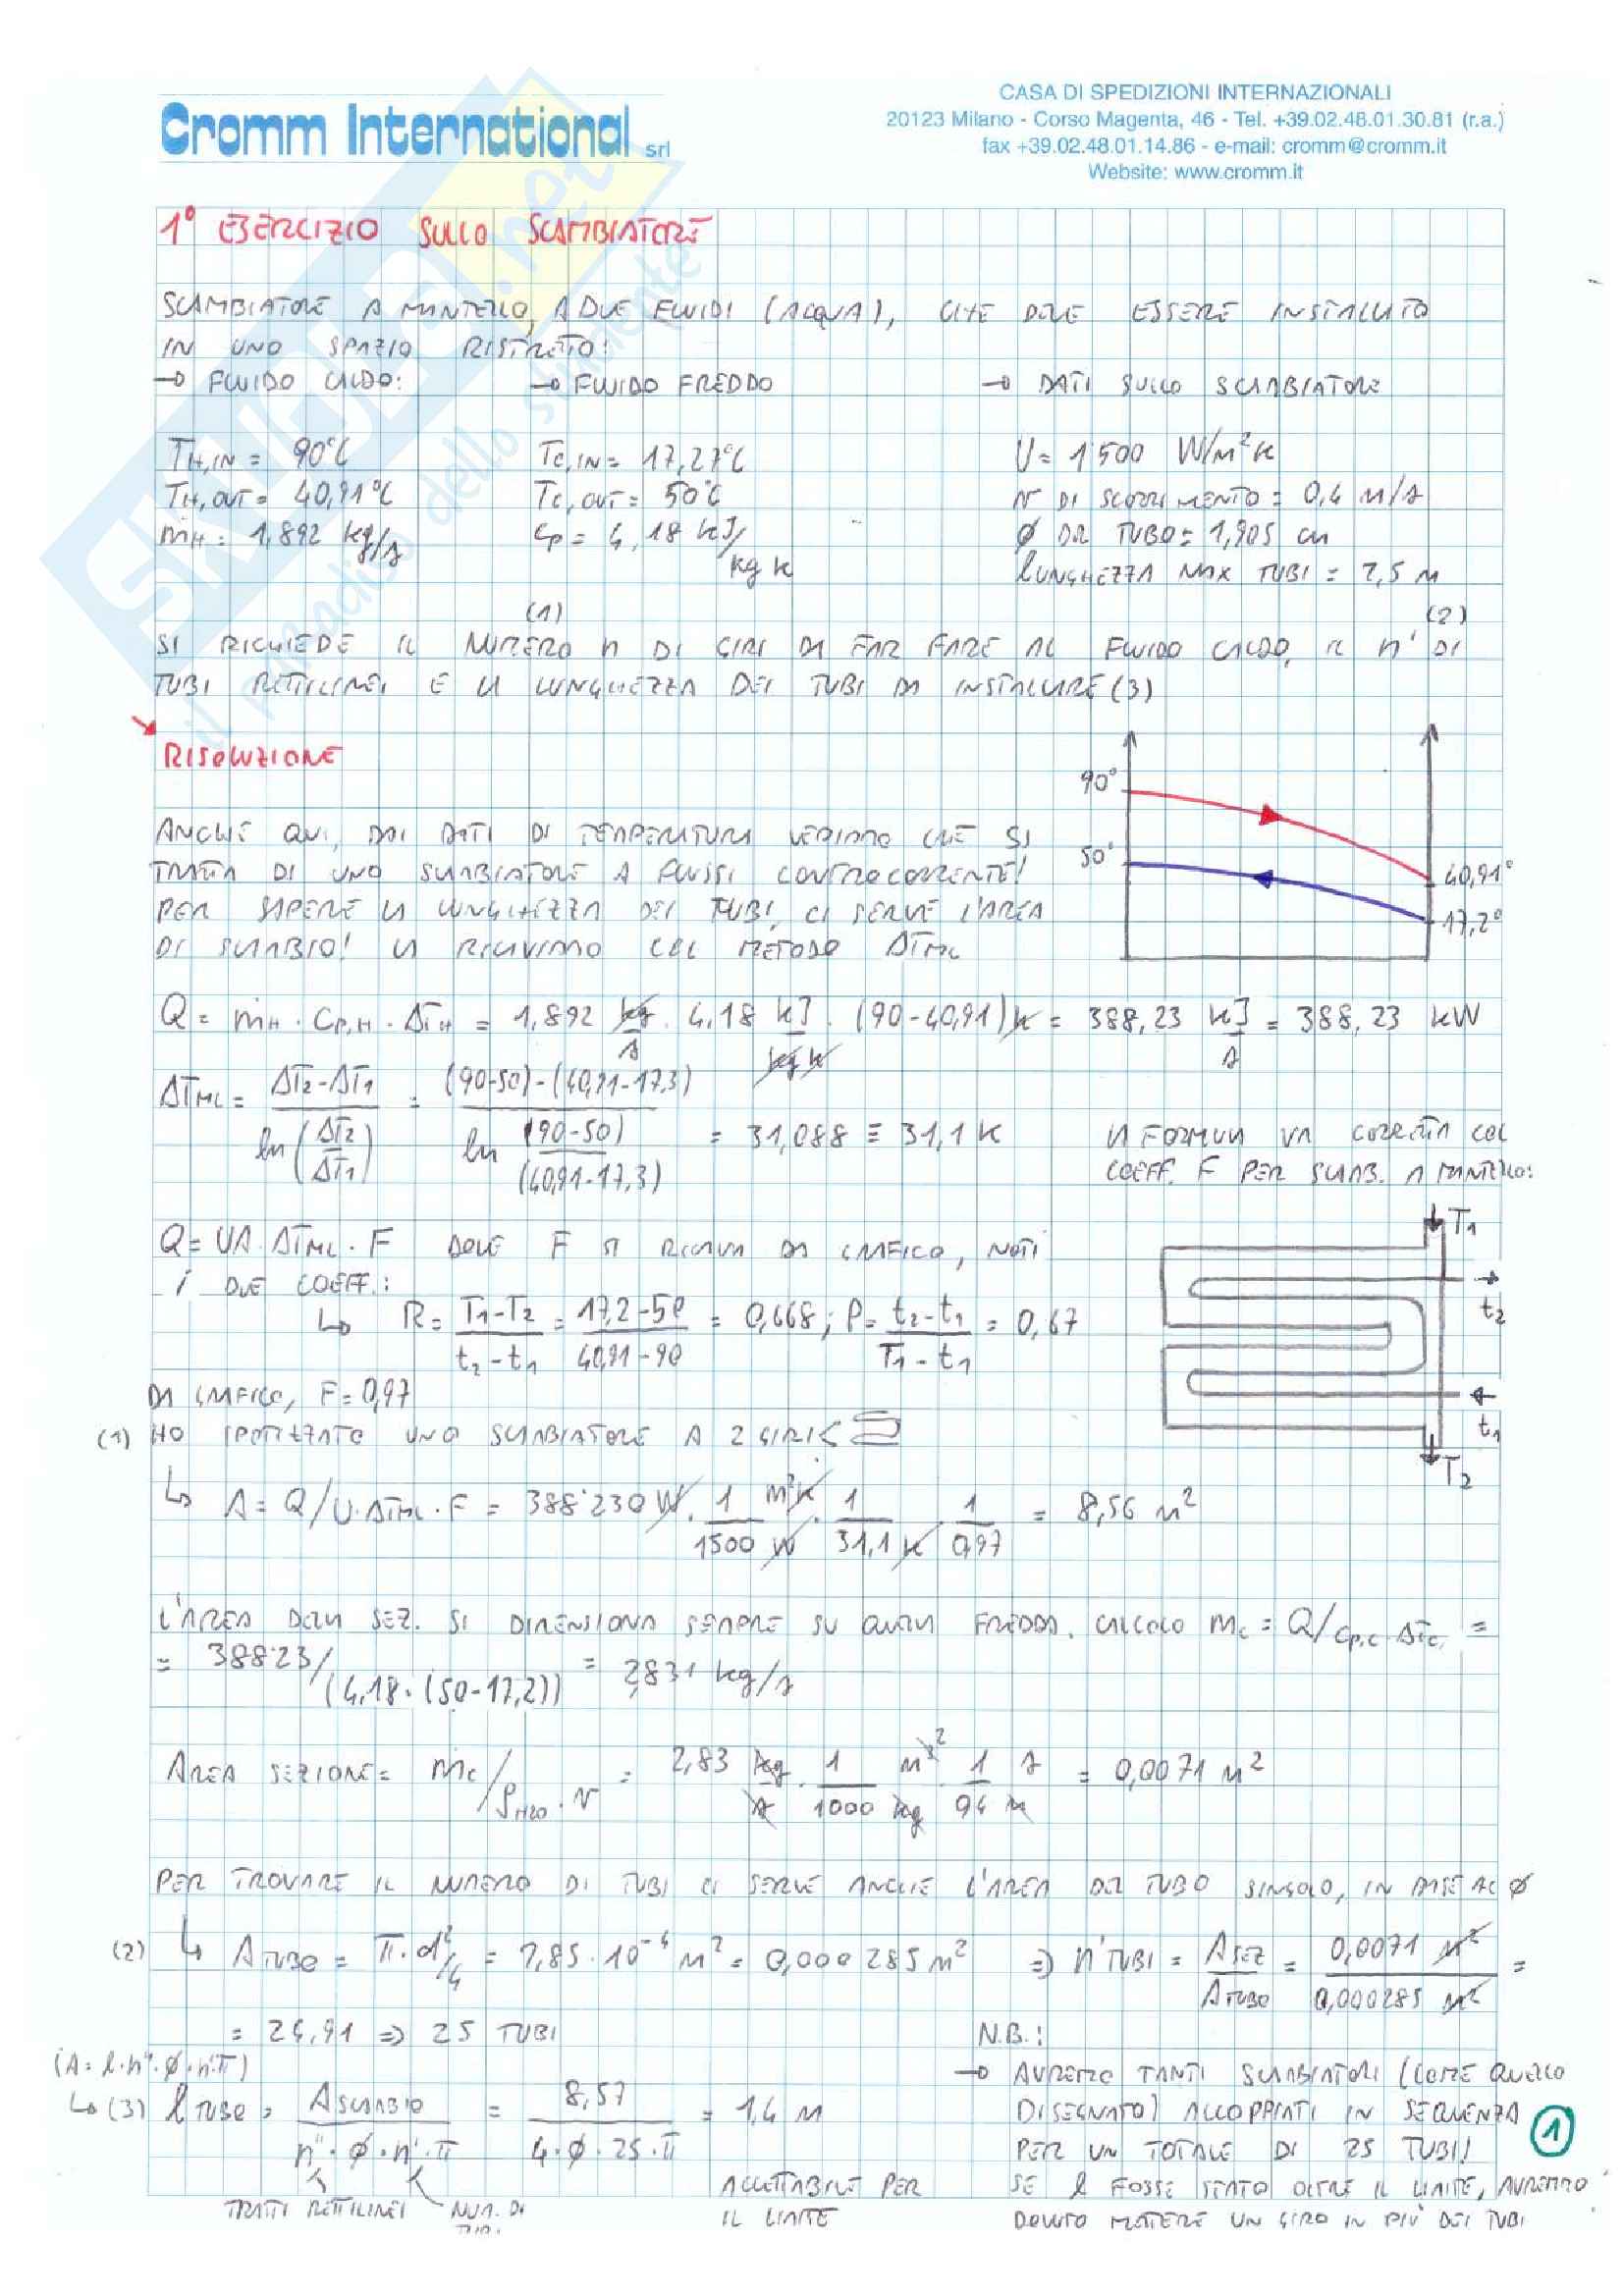 Cromm International srl
CASA DI SPEDIZIONI INTERNAZIONALI
20123 Milano - Corso Magenta, 46 - Tel. +39.02.48.01.30.81 (r.a.)
fax +39.02.48.01.14.86 - e-mail: cromm@cromm.it
Website: www.cromm.it
SKUOLA.net
il paradiso dello studente
1° ESERCIZIO SULLO SCAMBIATORE
SCAMBIATORE A MANTELLO, A DUE FLUIDI (ACQUA), CHE DEVE ESSERE INSTALLATO
IN UNO SPAZIO RISTRETTO:
→ FLUIDO CALDO: → FLUIDO FREDDO → DATI SULLO SCAMBIATORE
TH,IN = 90°C TC,IN = 17,27°C U = 1500 W/m²K
TH,OUT = 40,91°C TC,OUT = 50°C v DI SCORRIMENTO = 0,4 m/s
ṁH = 1,892 kg/s cp = 4,18 kJ/kg K ∅ DEL TUBO = 1,905 cm
LUNGHEZZA MAX TUBI = 2,5 m
(1) (2)
SI RICHIEDE IL NUMERO n DI GIRI DA FAR FARE AL FLUIDO CALDO, IL n' DI
TUBI RETTILINEI E LA LUNGHEZZA DEI TUBI DA INSTALLARE (3)
RISOLUZIONE
ANCHE QUI, DAI DATI DI TEMPERATURA VEDIAMO CHE SI
TRATTA DI UNO SCAMBIATORE A FLUSSI CONTROCORRENTE!
PER SAPERE LA LUNGHEZZA DEI TUBI, CI SERVE L'AREA
DI SCAMBIO! LA RICAVIAMO COL METODO ΔTML
90°
50°
40,91°
17,2°
Q = ṁH · Cp,H · ΔTH = 1,892 kg/s · 4,18 kJ/kg K · (90-40,91)K = 388,23 kJ/s = 388,23 kW
ΔTML = (ΔT2-ΔT1) / ln(ΔT2/ΔT1) = (90-50)-(40,91-17,3) / ln (90-50)/(40,91-17,3) = 31,088 ≡ 31,1 K
LA FORMULA VA CORRETTA COL
COEFF. F PER SCAMB. A MANTELLO:
Q = UA·ΔTML·F DOVE F SI RICAVA DA GRAFICO, NOTI
I DUE COEFF.:
↳ R = (T1-T2)/(t2-t1) = (17,2-50)/(40,91-90) = 0,668; P = (t2-t1)/(T1-t1) = 0,67
T1
t2
t1
T2
DA GRAFICO, F = 0,97
(1) HO IPOTIZZATO UNO SCAMBIATORE A 2 GIRI
↳ A = Q/U·ΔTML·F = 388'230 W · 1/1500 m²K/W · 1/31,1 K · 1/0,97 = 8,56 m²
L'AREA DELLA SEZ. SI DIMENSIONA SEMPRE SU QUELLA FREDDA. CALCOLO mc = Q/Cp,c·ΔTc, =
= 388'23/(4,18·(50-17,2)) = 2,831 kg/s
AREA SEZIONE = ṁc/ρH2O · v = 2,83 kg/s · 1/1000 m³/kg · 1/0,4 s/m = 0,0071 m²
PER TROVARE IL NUMERO DI TUBI CI SERVE ANCHE L'AREA DEL TUBO SINGOLO, IN BASE AL ∅
(2) ↳ ATUBO = π·d²/4 = 2,85·10⁻⁴ m² = 0,000285 m² ⇒ n'TUBI = ASEZ/ATUBO = 0,0071 m²/0,000285 m² =
= 24,91 ⇒ 25 TUBI
(A = l·n''·∅·n'·π)
↳ (3) lTUBO = ASCAMBIO / n''·∅·n'·π = 8,57 / 4·∅·25·π = 1,4 m
TRATTI RETTILINEI NUM. DI TUBI
ACCETTABILE PER
IL LIMITE
N.B.:
→ AVREMO TANTI SCAMBIATORI (COME QUELLO
DISEGNATO) ACCOPPIATI IN SEQUENZA
PER UN TOTALE DI 25 TUBI!
SE l FOSSE STATO OLTRE IL LIMITE, AVREMMO
DOVUTO METTERE UN GIRO IN PIÙ DEI TUBI
1